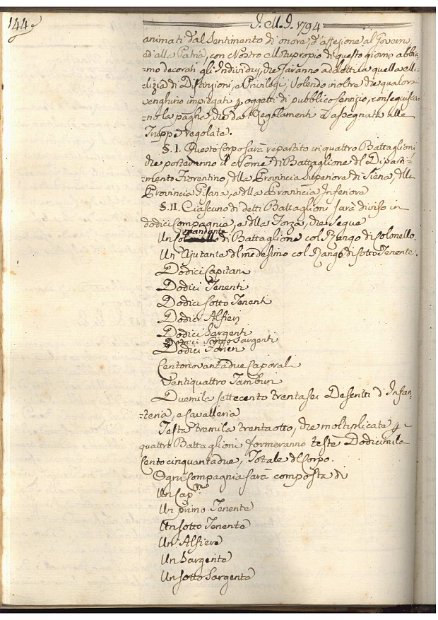 144
I. M. I. 1794
animati dal Sentimento di onore, d'affezione al Govern
ed alla Patria, con Nostro Motuproprio di questo giorno abbia
mo decorati gli Individui, che saranno addetti a quella Mi
lizia di Distinzioni, e Privilegi, Volendo inoltre che qualora
venghino impiegati in oggetti di pubblico servizio, conseguisca
no le paghe, che da Regolamenti è assegnata alle
Truppe regolate.
§. I. Questo Corpo sarà repartito in quattro Battaglioni
che porteranno il Nome di Battaglione del Diparti
mento Fiorentino, della Provincia Superiore di Siena, della
Provincia Pisana, e della Provincia Inferiore
§. II. Ciascuno di detti Battaglioni sarà diviso in
dodici Compagnie, e della Forza, che segue
Un Comandante di Battaglione col Rango di Colonello
Un Ajutante del medesimo col Rango di Sotto Tenente
Dodici Capitani
Dodici Tenenti
Dodici Sotto Tenenti
Dodici Alfieri
Dodici Sargenti
Dodici Sotto Sargenti
Dodici Forieri
Centonovantadue Caporali
Ventiquattro Tamburi
Duemila settecento trentasei Descritti d'Infan
teria, e Cavalleria
Teste tremila trentotto, che moltiplicate p
quattro Battaglioni formeranno teste Dodicimila
Cento cinquantadue, Totale del Corpo.
Ogni Compagnia sarà composta di
Un Cap.
Un primo Tenente
Un sotto Tenente
Un Alfiere
Un Sargente
Un sotto Sargente